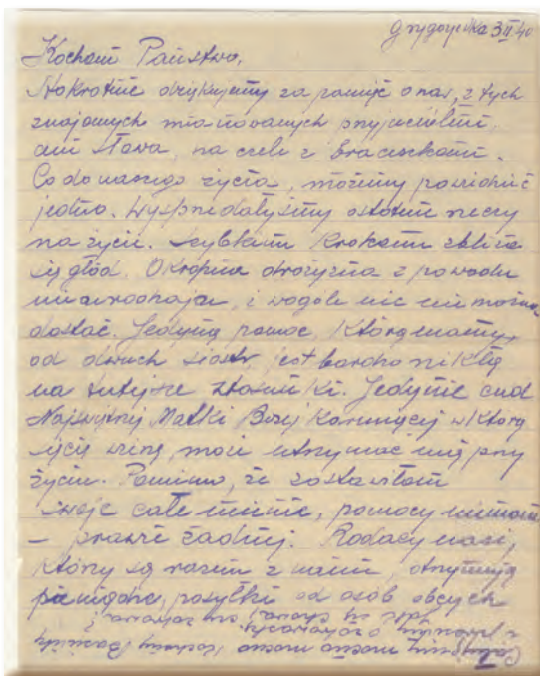 3 II 40
Kochani Państwo,
Stokrotnie dziękujemy za pamięć o nas, z tych
znajomych mianowanych przyjaciółmi,
ani słowa, na czele z braciszkami.
Co do naszego życia, możemy powiedzieć
jedno. Wysprzedałyśmy ostatnie rzeczy
na życie. Szybkim krokiem zbliża
się głód. Okropna drożyzna z powodu
nieurodzaju, i wogóle nic nie można
dostać. Jedyną pomoc, którą mamy,
od dwuch siostr jest bardzo nikłą
na tutejsze stosunki. Jedynie cud
Najświętszej Matki Bożej Karmiącej w którą
wierzę, może utrzymać mię przy
życiu. Pomimo, że zostawiłam
swoje całe mienie, pomocy niemam
– prawie żadnej. Rodacy nasi,
którzy są razem z nami, otrzymują
pieniądze, posyłki od osób obcych